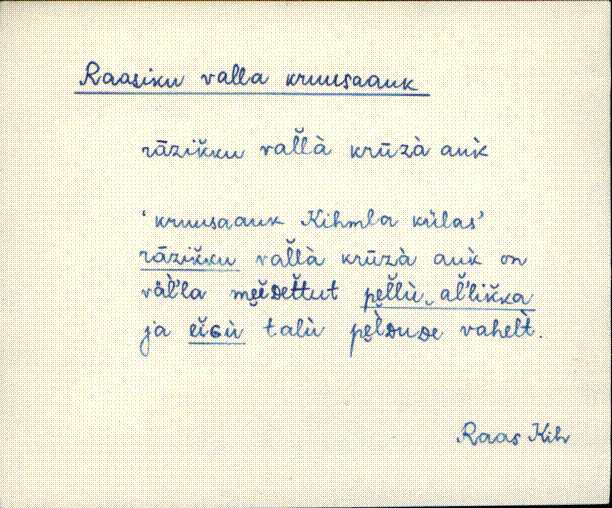 Raasiku valla kruusaauk
rāzik̆ku val̆l̆à krūzà auk̀
'kruusaauk Kihmla külas'
rāzik̆ku val̆l̆à krūzà auk̀ on
väl̆'la mẹi̮ᴅet̆tut pẹl̆l̆ù, al̆'lik̆ka
ja eĭɢù talù pẹl̀ᴅuᴅe vahelt̀.
Raas Kih